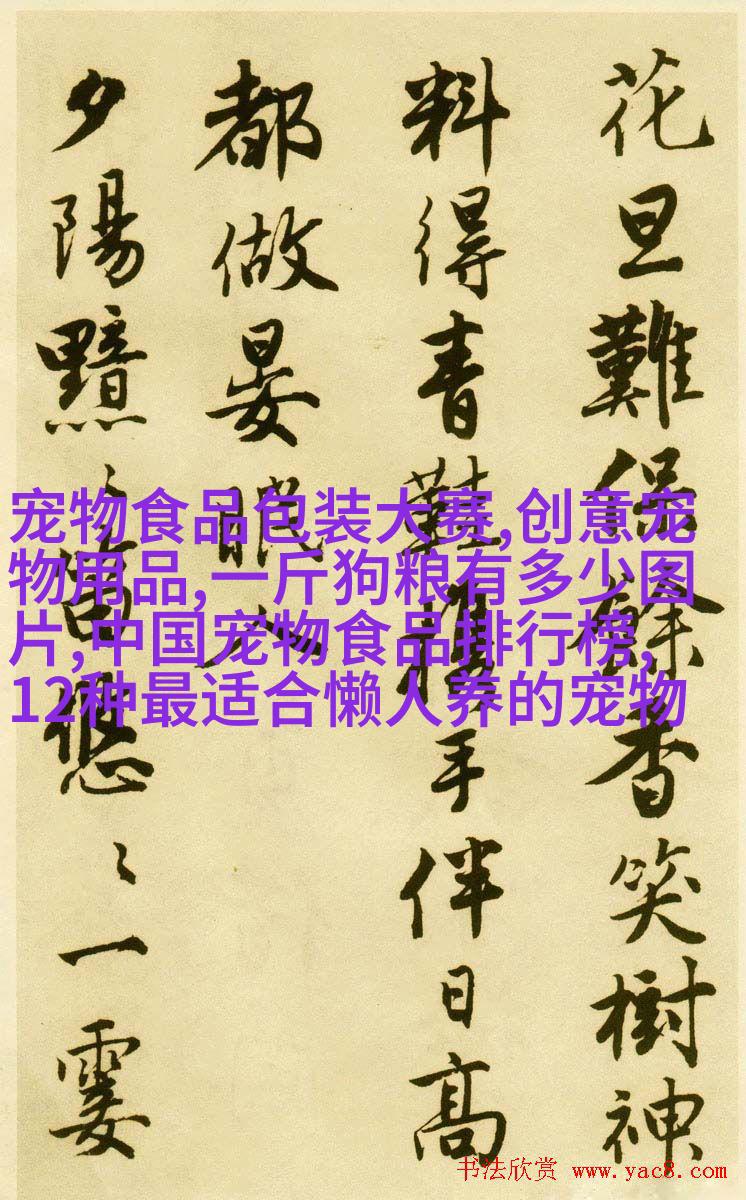 花旦難保餘香笑樹神
料得青鞋攜手伴日高
都做晏眠人
夕陽黯々悠々一霎
宠物食品包装大赛,创意宠
物用品,一斤狗粮有多少图
片,中国宠物食品排行榜,
12种最适合懒人养的宠物
书法欣赏 www.yac8.com